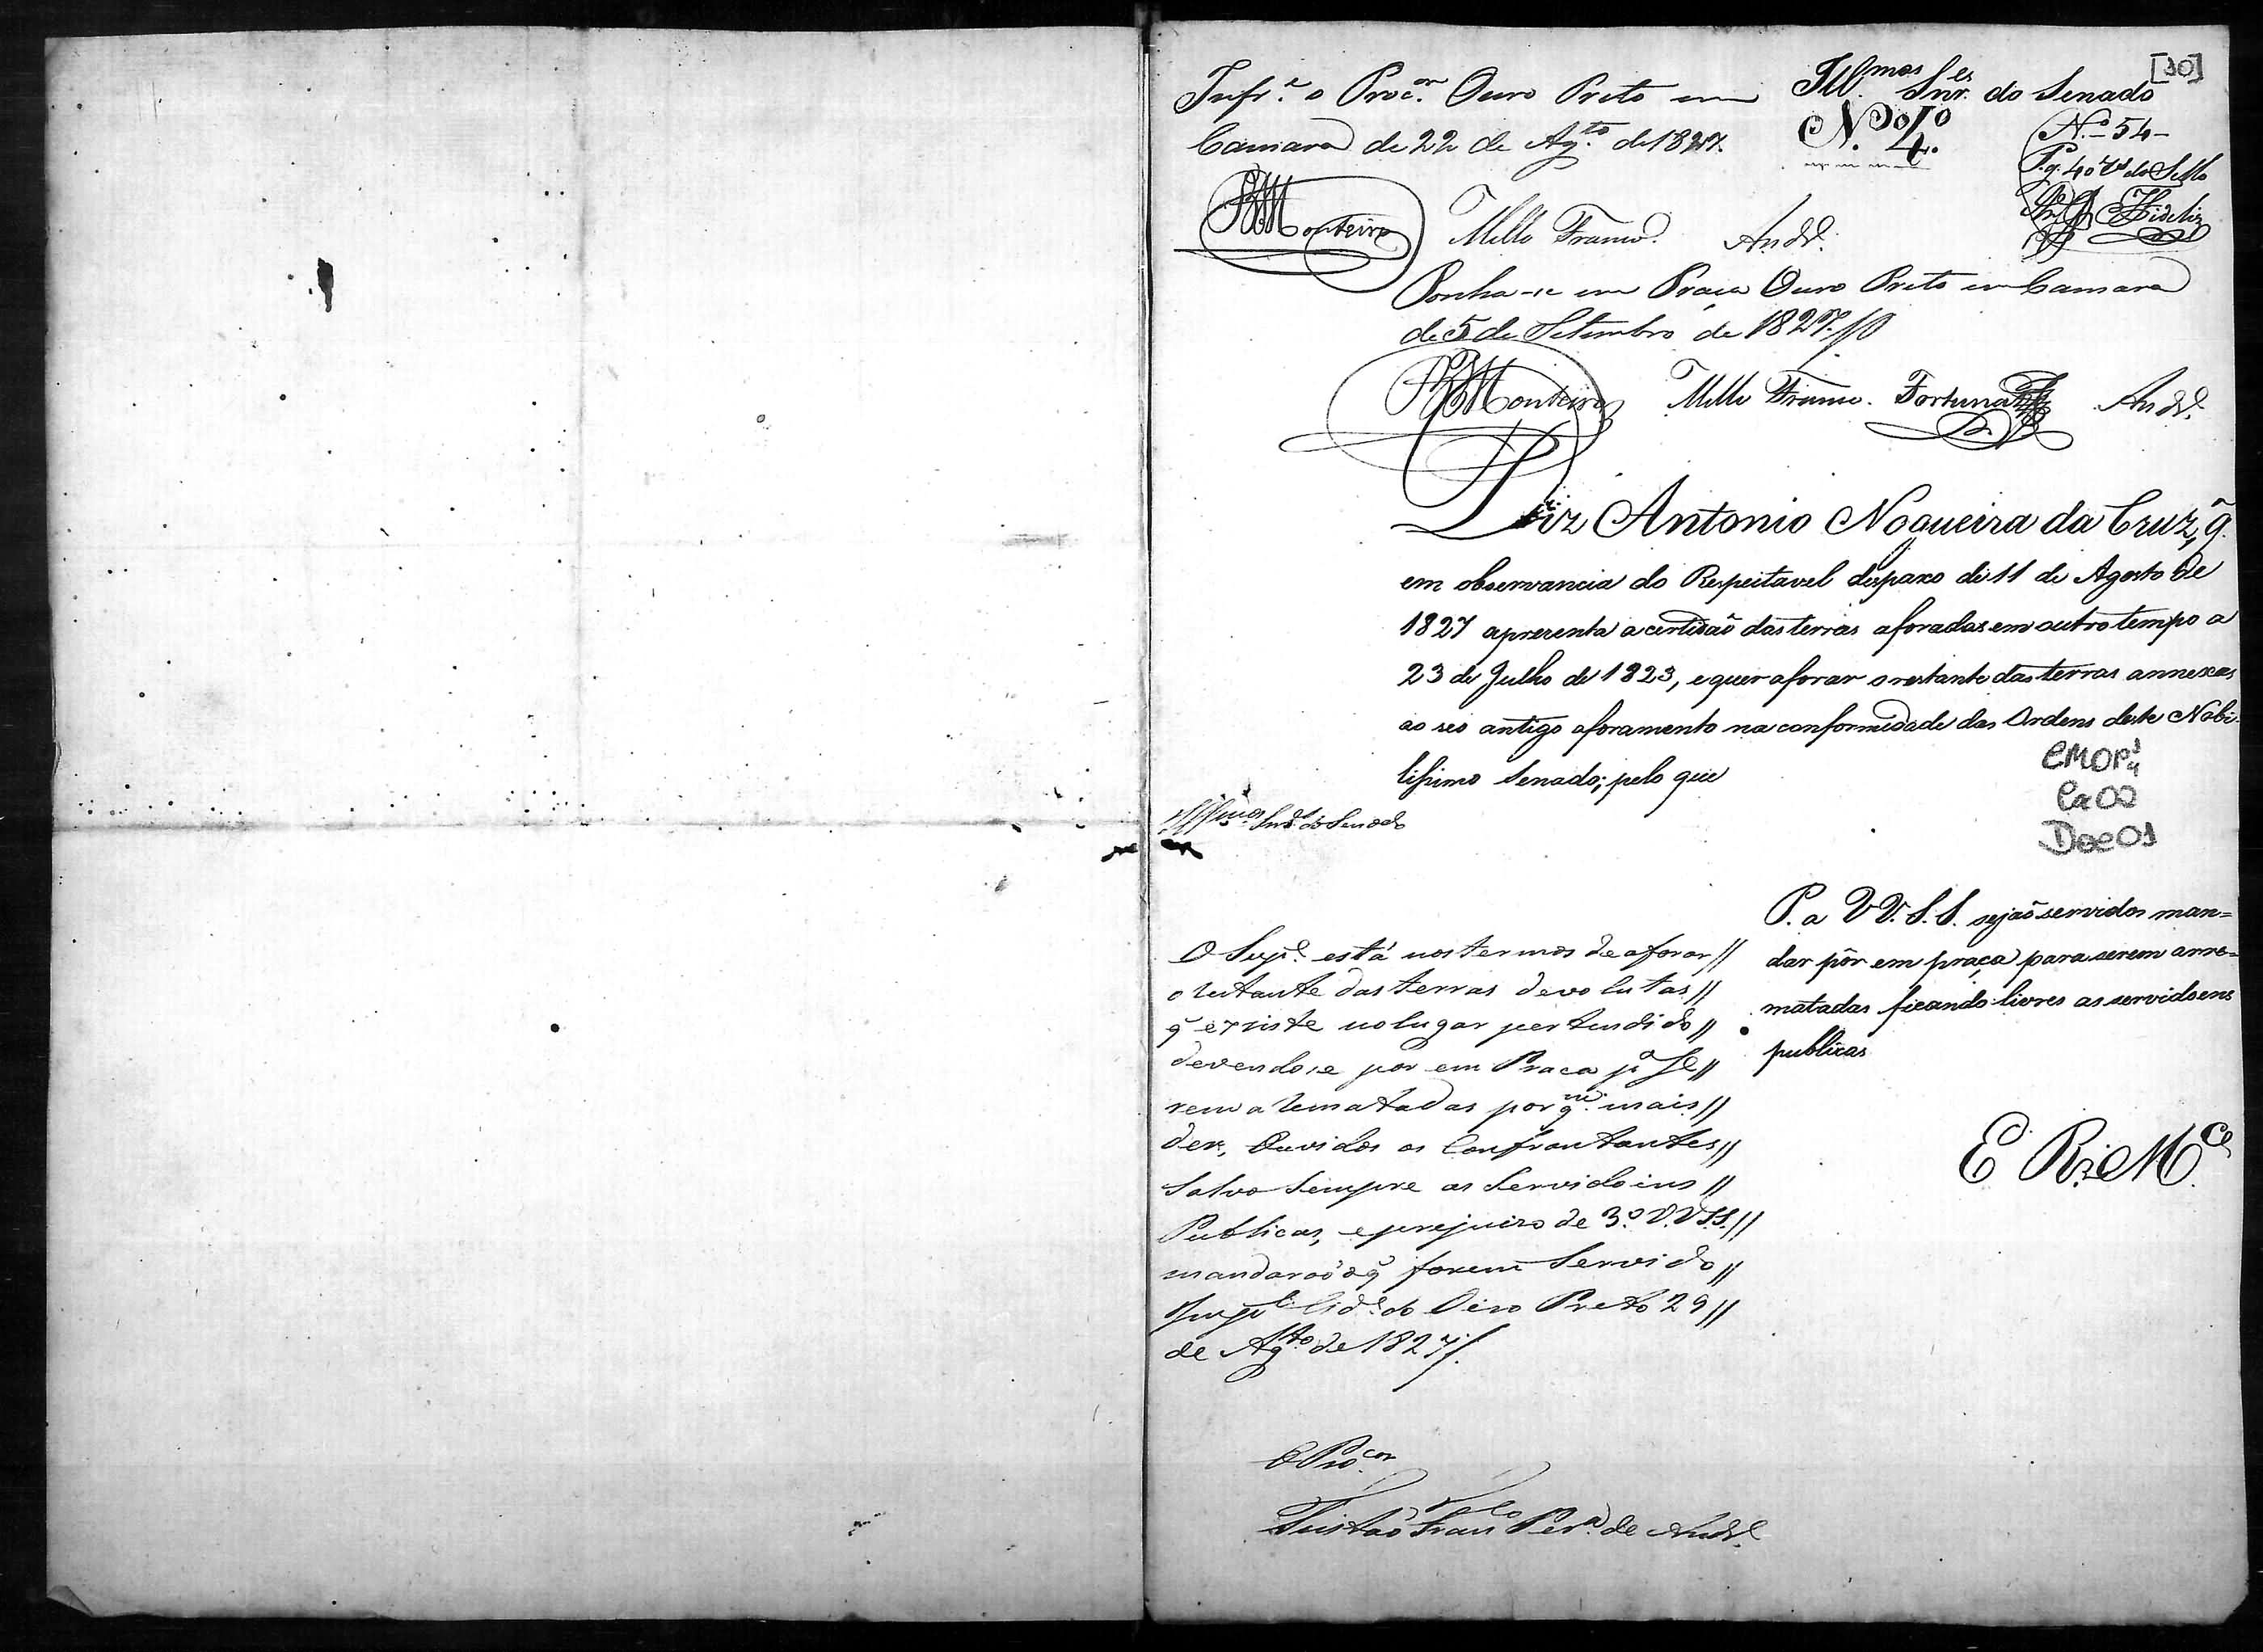 [10]
Illmos Snres do Senado
Infre o Procor Ouro Preto em
Camara de 22 de Agto de 1827.
No 4o
N.o 54-
Pg. 40 rs do Sello
Monteiro Mello Franco. Andre.
Ponha-se em Praça Ouro Preto em Camara
de 5 de Setembro de 1827.
Monteiro Mello Franco. Fortunato Andre.
Diz Antonio Nogueira da Cruz, q̃
em observancia do Respeitavel despaxo de 11 de Agosto de
1827 aprezenta a certidaõ das terras aforadas em outro tempo a
23 de Julho de 1823, e quer aforar o restante das terras annexas
ao seo antigo aforamento na conformidade das Ordens deste Nobi-
lissimo Senado; pelo que
CMOP
Cx 02
Doc 01
Illmos Snres do Senado
P. a VV. S.S. sejaõ servidos man=
dar pôr em praça para serem arre=
matadas ficando livres as servidoens
publicas
E R. Mce
O Supe está nos termos de aforar //
o restante das terras devolutas //
q̃ existe no lugar pertendido //
devendo se por em Praça pa Se //
rem arematadas por qm mais //
der, Ouvidos os Confrontantes //
Salvo Sempre as Servidoins //
Publicas, e prejuizo de 3.o V.V.S.S. //
mandaraõ o q̃ forem Servido //
Impl Cide do Oiro Preto 29 //
de Agto de 1827
O Procor
Tristaõ Franco Pera de Andre